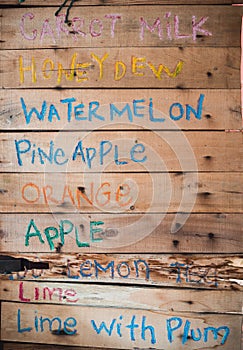 CARROT MILK
HONEYDEW
WATERMELON
PineApple
ORANGE
APPLE
Lemon Tea
Lime
Lime with Plum